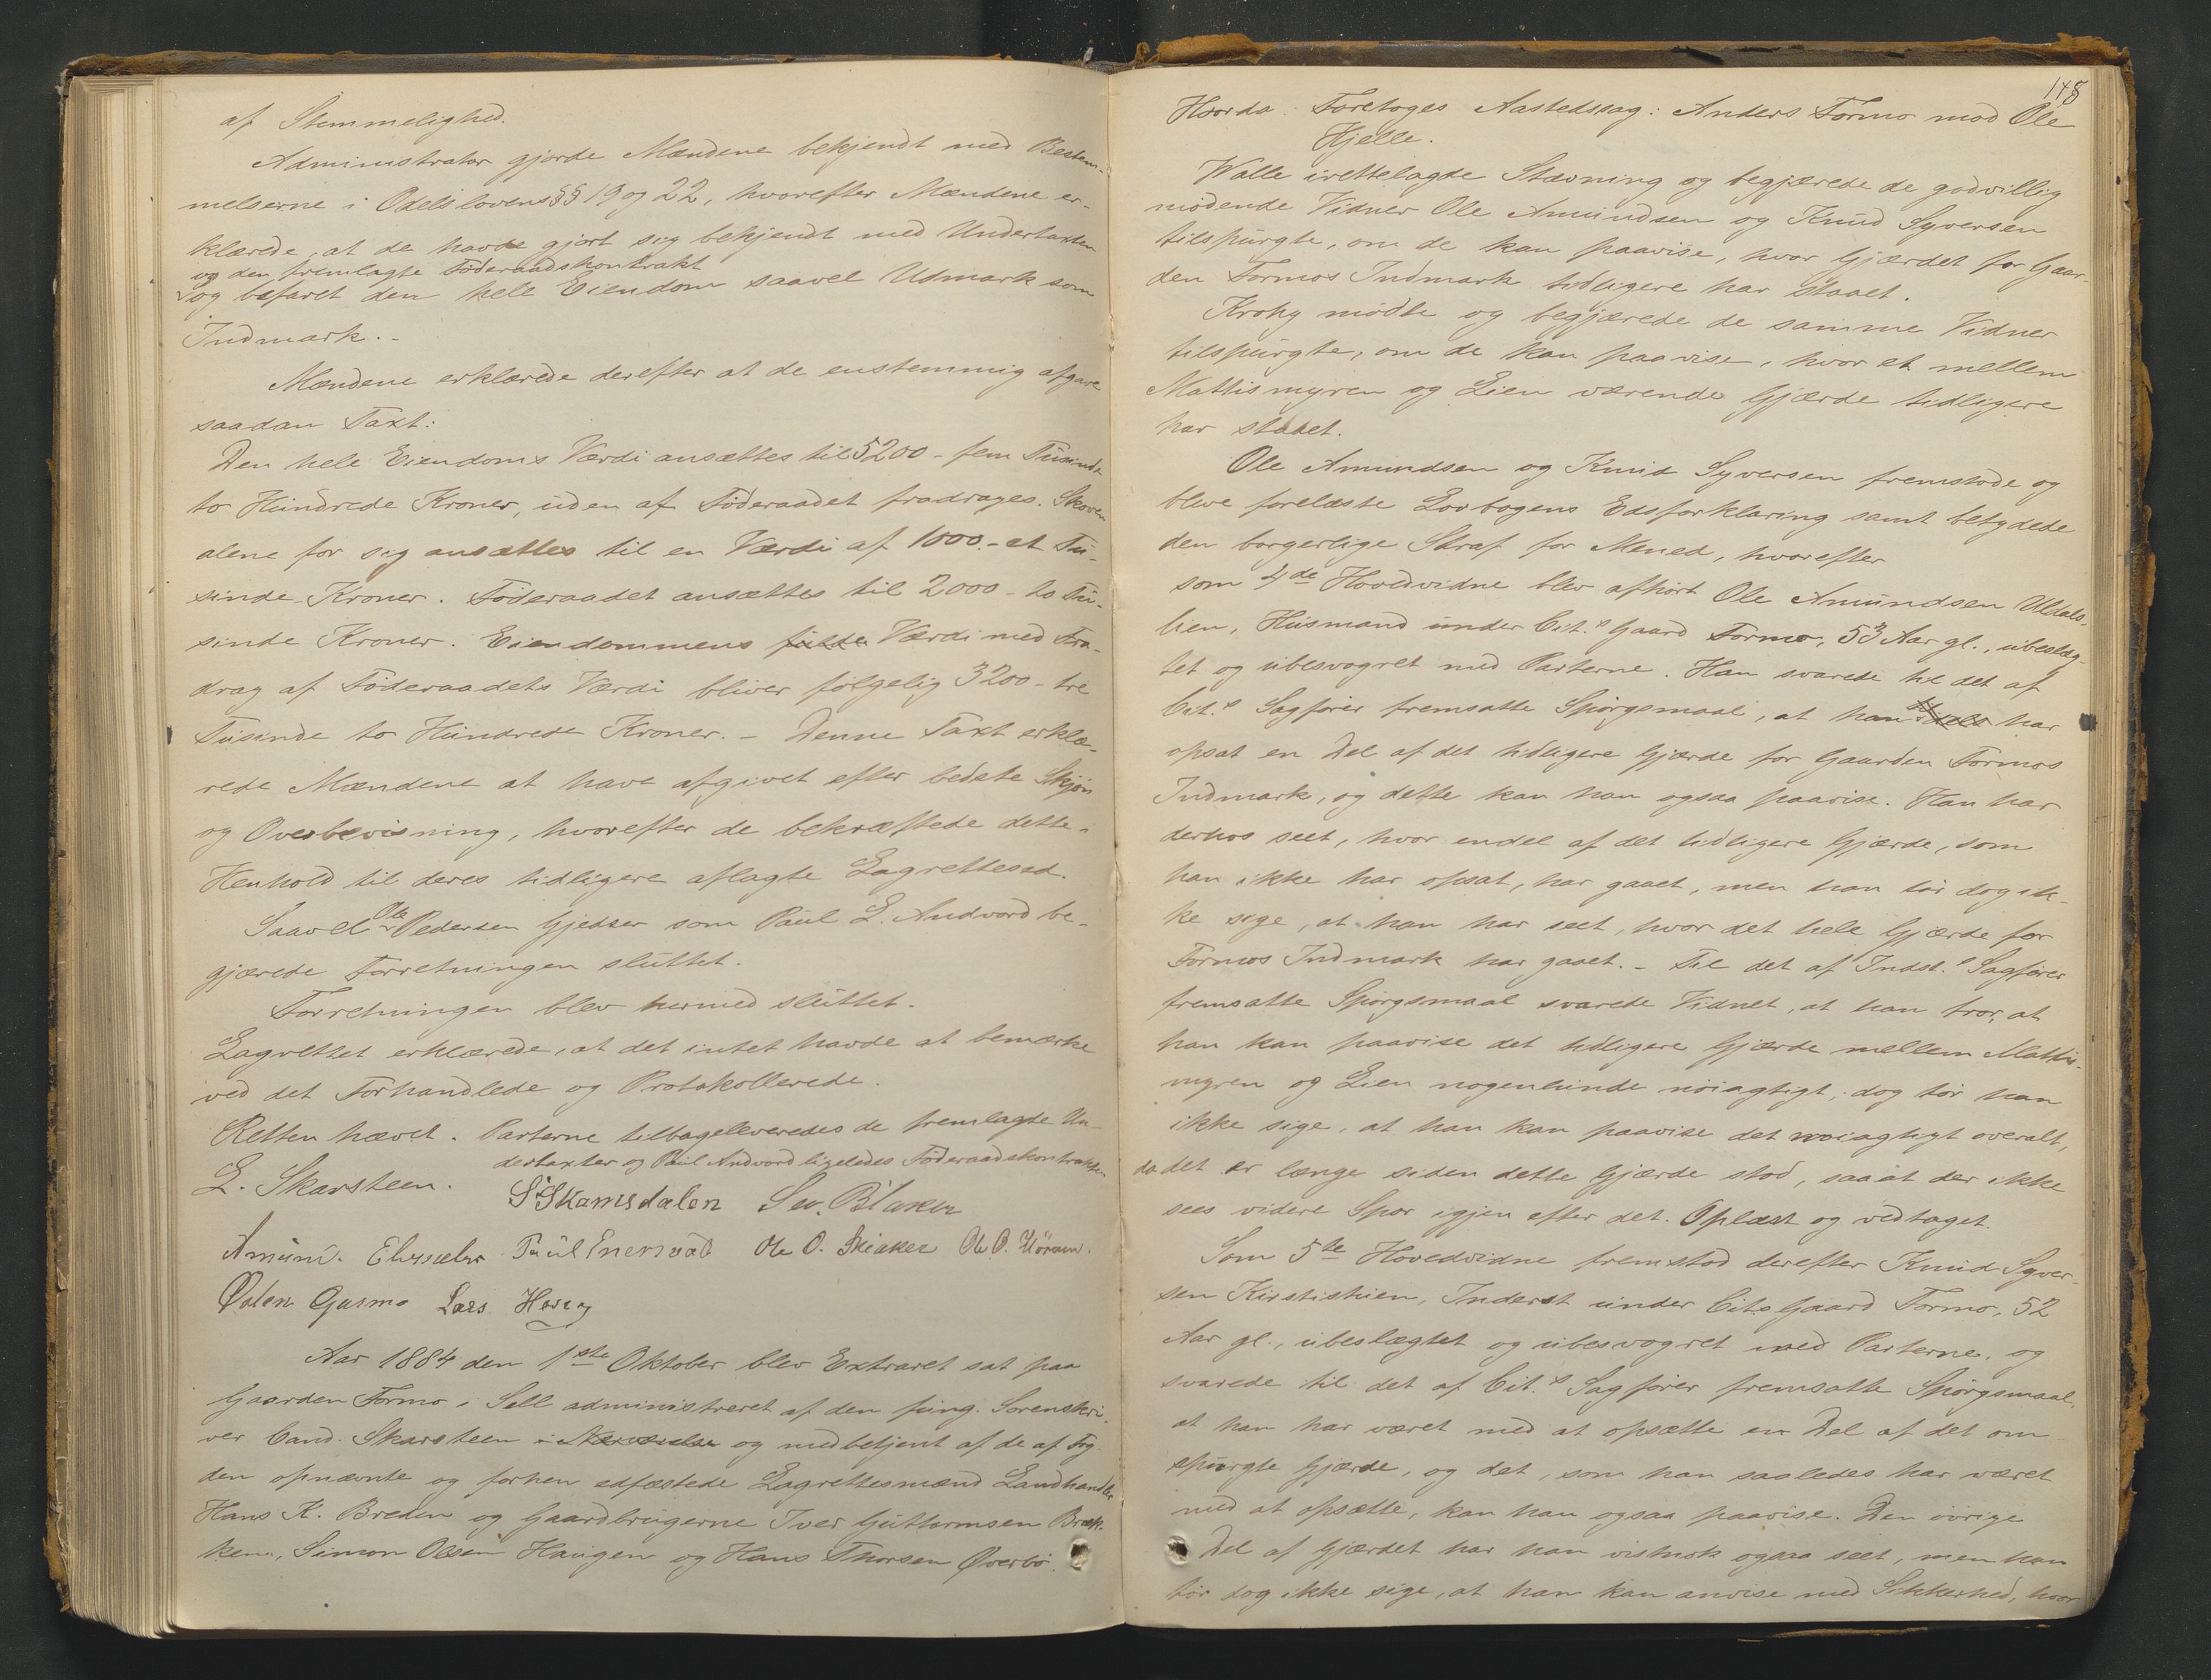 af Stemmelighed.
Administrator gjorde Mændene bekjendt med Bestem-
melserne i Odelslovens §§ 19 og 22, hvorefter Mændene er-
klærede, at de havde gjort sig bekjendt med Undertaxten
og den fremlagte Föderaadskontrakt
og befaret den hele Eiendom saavel Udmark som
Indmark.-
Mændene erklærede derefter at de enstemmig afgave
saadan Taxt:
Den hele Eiendoms Værdi ansættes til 5200 - fem Tusinde
to Hundrede Kroner, uden af Föderaadet fradrages. Skoven
alene for sig ansættes til en Værdi af 1000.- et Tu-
sinde Kroner. Föderaadet ansættes til 2000 - to Tu-
sinde Kroner. Eiendommens fulde Værdi med Fra-
drag af Föderaadets Værdi bliver fölgelig 3200 - tre
Tusinde to Hundrede Kroner. - Denne Taxt erklæ-
rede Mændene at have afgivet efter bedste Skjön
og Overbevisning, hvorefter de bekræftede dette i
Henhold til deres tidligere aflagte Lagrettesed.
Saavel Ole Pedersen Gjedser som Paul L. Andvord be-
gjærede Forretningen sluttet.
Forretningen blev hermed sluttet.
Lagrettet erklærede, at det intet havde at bemærke
ved det Forhandlede og Protokollerede.
Retten hævet. Parterne tilbageleveredes de fremlagte Un-
dertaxter og Paul Andvord ligeledes Föderaadskontrakten
E. Skarsteen. S. Skamsdalen Sev. Blaker
Amund. Paul Enersvold Ole O. Skiaker Ole O.
Gusmo Lars
Aar 1884 den 1ste Oktober blev Extraret sat paa
Gaarden Formo i Sell administreret af den fung. Sorenskri-
ver Cand. Skarsteen i Nærværelse og medbetjent af de af Fog-
den opnævnte og forhen edfæstede Lagrettesmænd Landhandler
Hans K. Breden og Gaardbrugerne Iver Guttormsen Bræk-
ken, Simon Olsen Haugen og Hans Thorsen Överbö.
148
Hvorda: Foretoges Aastedssag: Anders Formo mod Ole
Hjelle.
Walle irettelagde Stævning og begjærede de godvillig
mödende Vidner Ole Amundsen og Knud Syversen
tilspurgte, om de kan paavise, hvor Gjærdet for Gaar-
den Formos Indmark tidligere har staaet.
Krohg mödte og begjærede de samme Vidner
tilspurgte, om de kan paavise, hvor et mellem
Mattismyren og Lien værende Gjærde tidligere
har staaet.
Ole Amundsen og Knud Syversen fremstode og
bleve forelæste Lovbogens Edsforklaring samt betydede
den borgerlige Straf for Mened, hvorefter
som 4de Hovedvidne blev afhört Ole Amundsen Uldals-
lien, Husmand under Cit.s Gaard Formo, 53 Aar gl., ubeslæg-
tet og ubesvogret med Parterne. Han svarede til det af
Cit.s Sagförer fremsatte Spörgsmaal, at han har
opsat en Del af det tidligere Gjærde for Gaarden Formos
Indmark, og dette kan han ogsaa paavise. Han har
derhos seet, hvor endel af det tidligere Gjærde, som
han ikke har opsat, har gaaet, men han tör dog ik-
ke sige, at han har seet, hvor det hele Gjærde for
Formos Indmark har gaaet. - Til det af Indst.s Sagförer
fremsatte Spörgsmaal svarede Vidnet, at han tror, at
han kan paavise det tidligere Gjærde mellem Mattis-
myren og Lien nogenlunde nöiagtigt, dog tör han
ikke sige, at han kan paavise det nöiagtigt overalt,
da det er længe siden dette Gjærde stod, saa at der ikke
sees videre Spor igjen efter det. Oplæst og vedtaget.
Som 5te Hovedvidne fremstod derefter Knud Syver-
sen Kirstistuen, Inderst under Cits Gaard Formo, 52
Aar gl., ubeslægtet og ubesvogret med Parterne, og
svarede til det af Cit.s Sagförer fremsatte Spörgsmaal,
at han har været med at opsætte en Del af det om-
spurgte Gjærde, og det, som han saaledes har været
med at opsætte, kan han ogsaa paavise. Den övrige
Del af Gjærdet har han vistnok ogsaa seet, men han
tör dog ikke sige, at han kan anvise med Sikkerhed, hvor